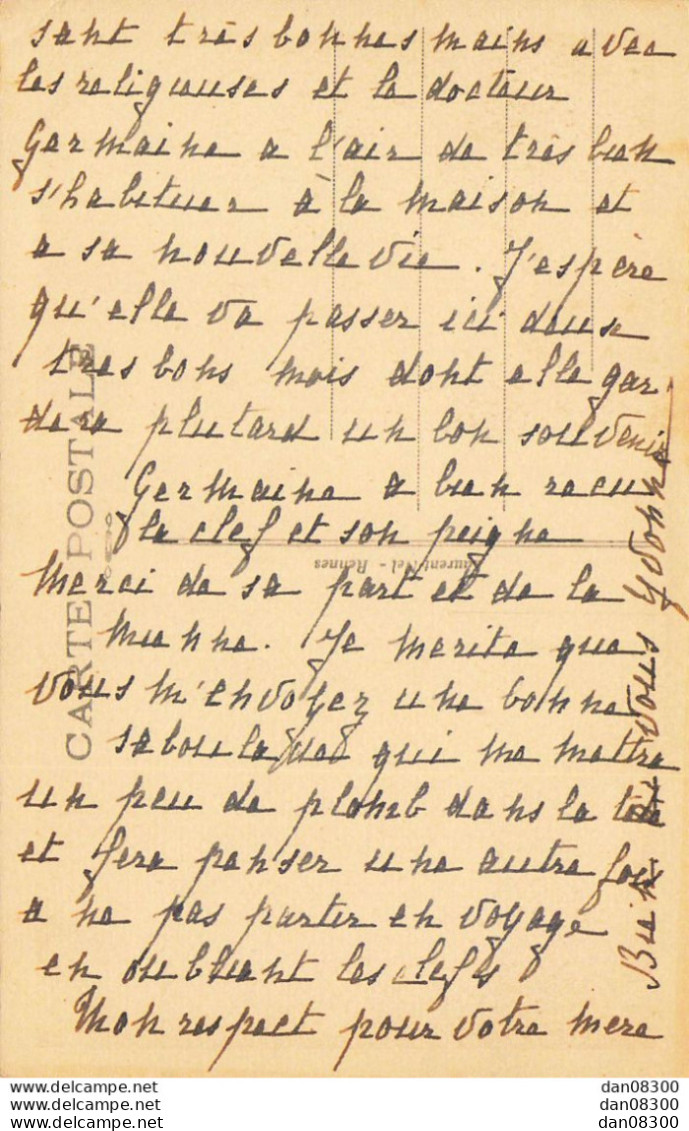 sont très bonnes mains avec
les religieuses et le docteur
Germaine a l'air de très bien
s'habituer à la maison et
a sa nouvelle vie. J'espère
qu'elle va passer ici deux
tres bons mois dont elle gar
dera plutard un bon souvenir
Germaine a bien recu
la clef et son peigne
Merci de sa part et de la
mienne. Je merite que
vous m'envoyez une bonne
qui me mettra
un peu de plomb dans la tête
et fera penser une autre fois
a ne pas partir en voyage
en oubliant les clefs
Mon respect pour votre mere
Bien à vous Yvonne
CARTE POSTALE
Laurent-Nel - Rennes
dan08300
delcampe.net
dan08300
delcampe.net
dan08300
delcampe.net